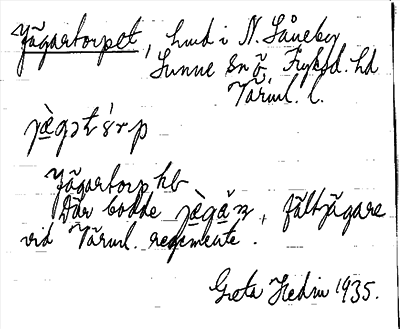 Jägartorpet, hmd i N. Låneby
Sunne sn Ö. Fryksd. hd
Värml. l.
Jägartorp hb
Där bodde , fältjägare
vid Värml. regemente.
Greta Hedin 1935.